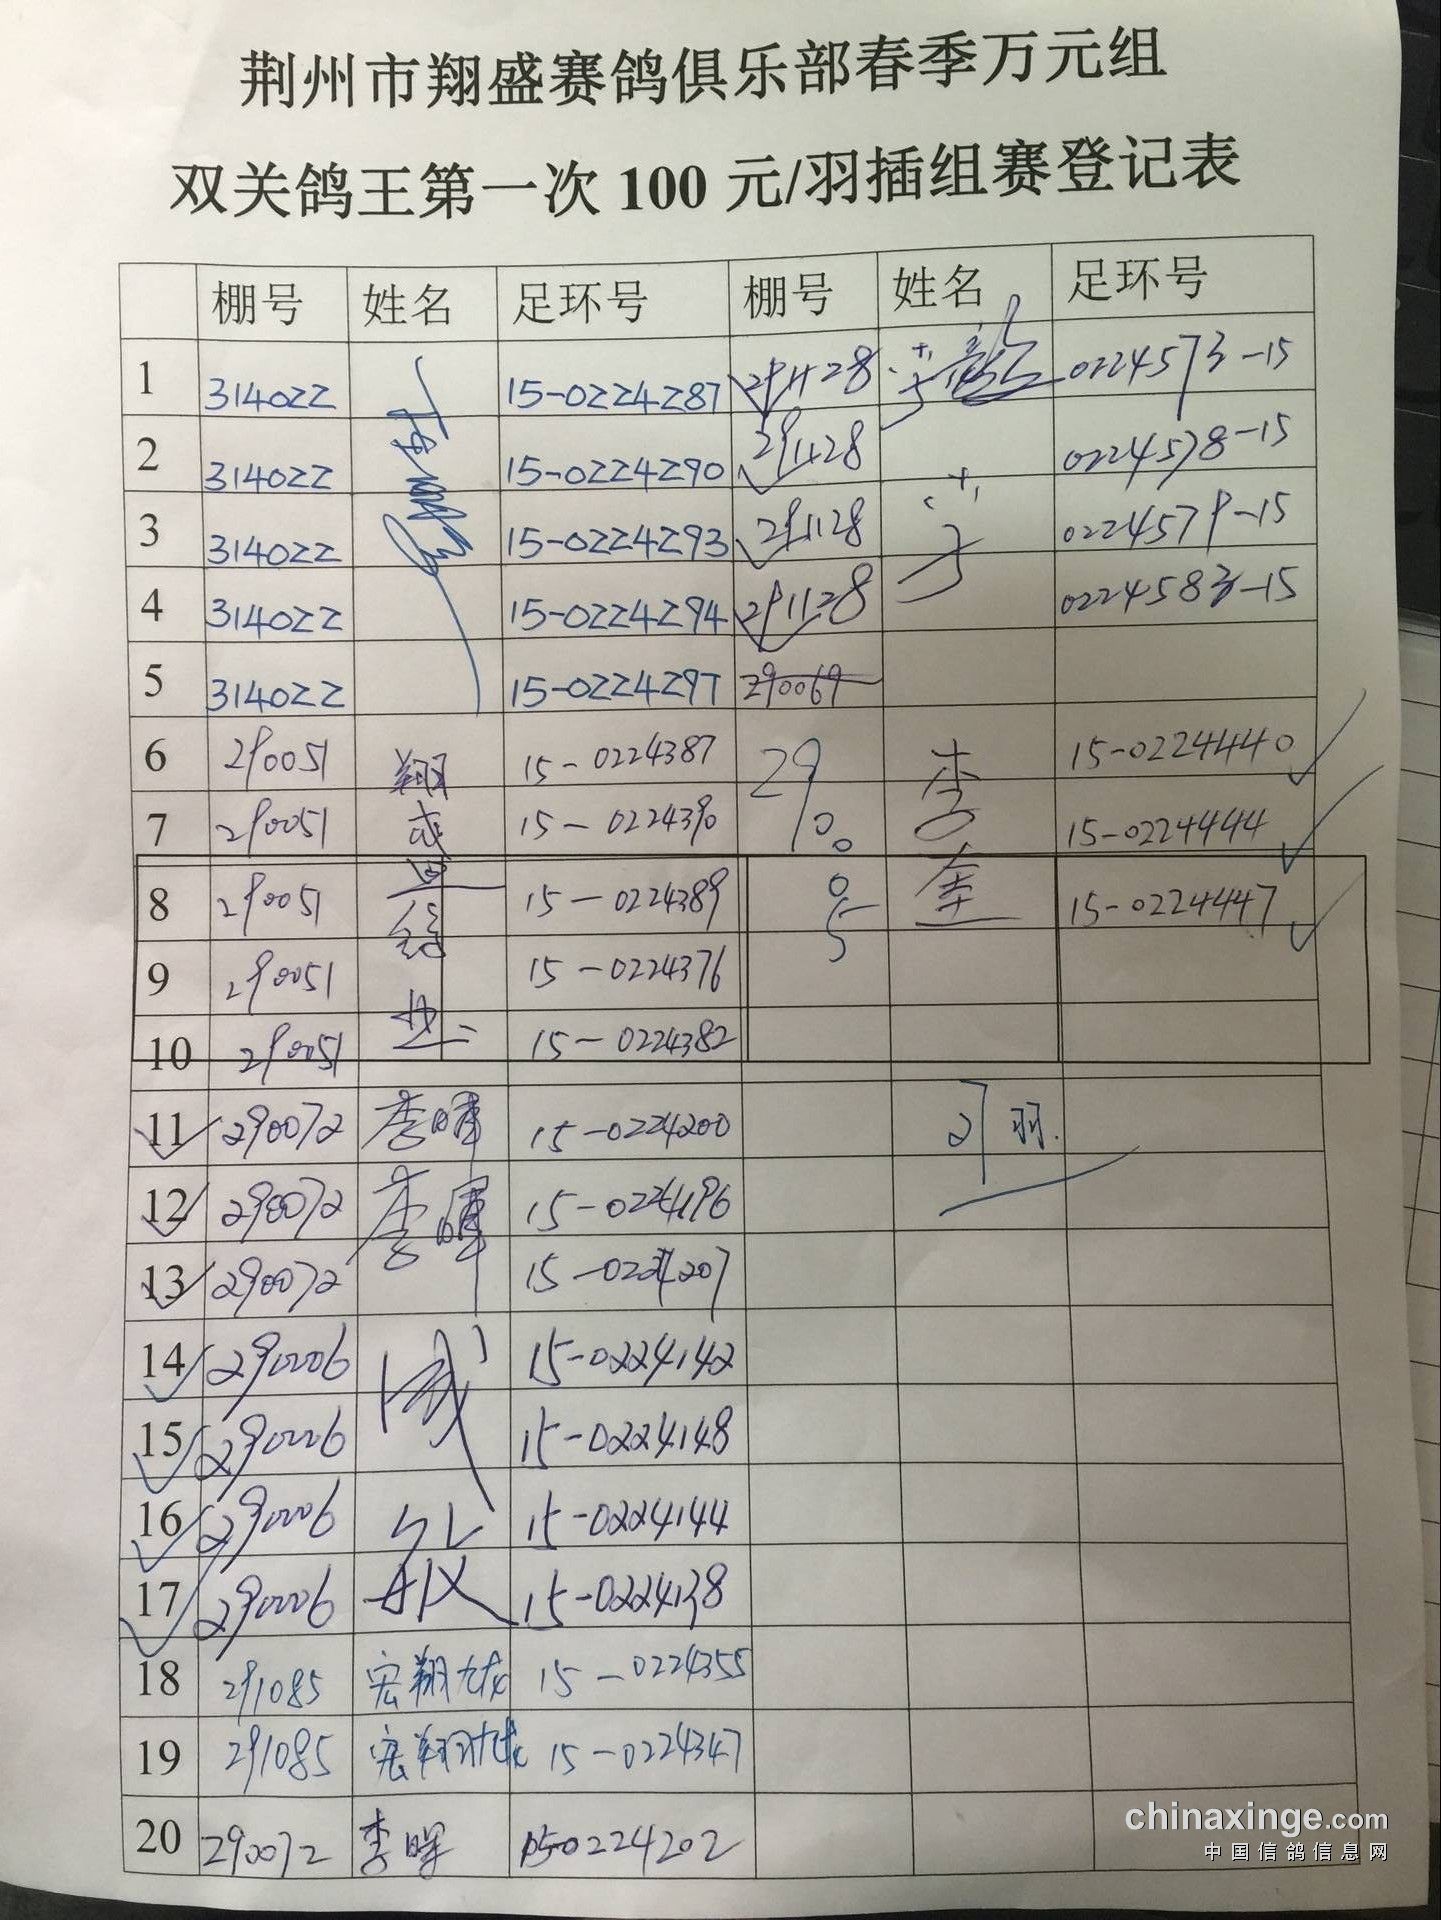 荆州市翔盛赛鸽俱乐部春季万元组
双关鸽王第一次 100 元/羽插组赛登记表
棚号 姓名 足环号 棚号 姓名 足环号
1 314022 15-0224287 291128 0224573-15
2 314022 15-0224290 291128 0224578-15
3 314022 15-0224293 291128 0224579-15
4 314022 15-0224294 291128 0224583-15
5 314022 15-0224297 290069
6 290051 翔 15-0224387 29 李 15-0224440
7 290051 盛 15-0224390 00 奎 15-0224444
8 290051 15-0224389 05 15-0224447
9 290051 15-0224376
10 290051 15-0224382
11 290072 李晖 15-0224200 21羽.
12 290072 李晖 15-0224196
13 290072 15-0224207
14 290006 15-0224142
15 290006 15-0224148
16 290006 15-0224144
17 290006 15-0224138
18 291085 宏翔九龙 15-0224355
19 291085 宏翔九龙 15-0224347
20 290072 李晖 15-0224202
chinaxinge.com
中国信鸽信息网